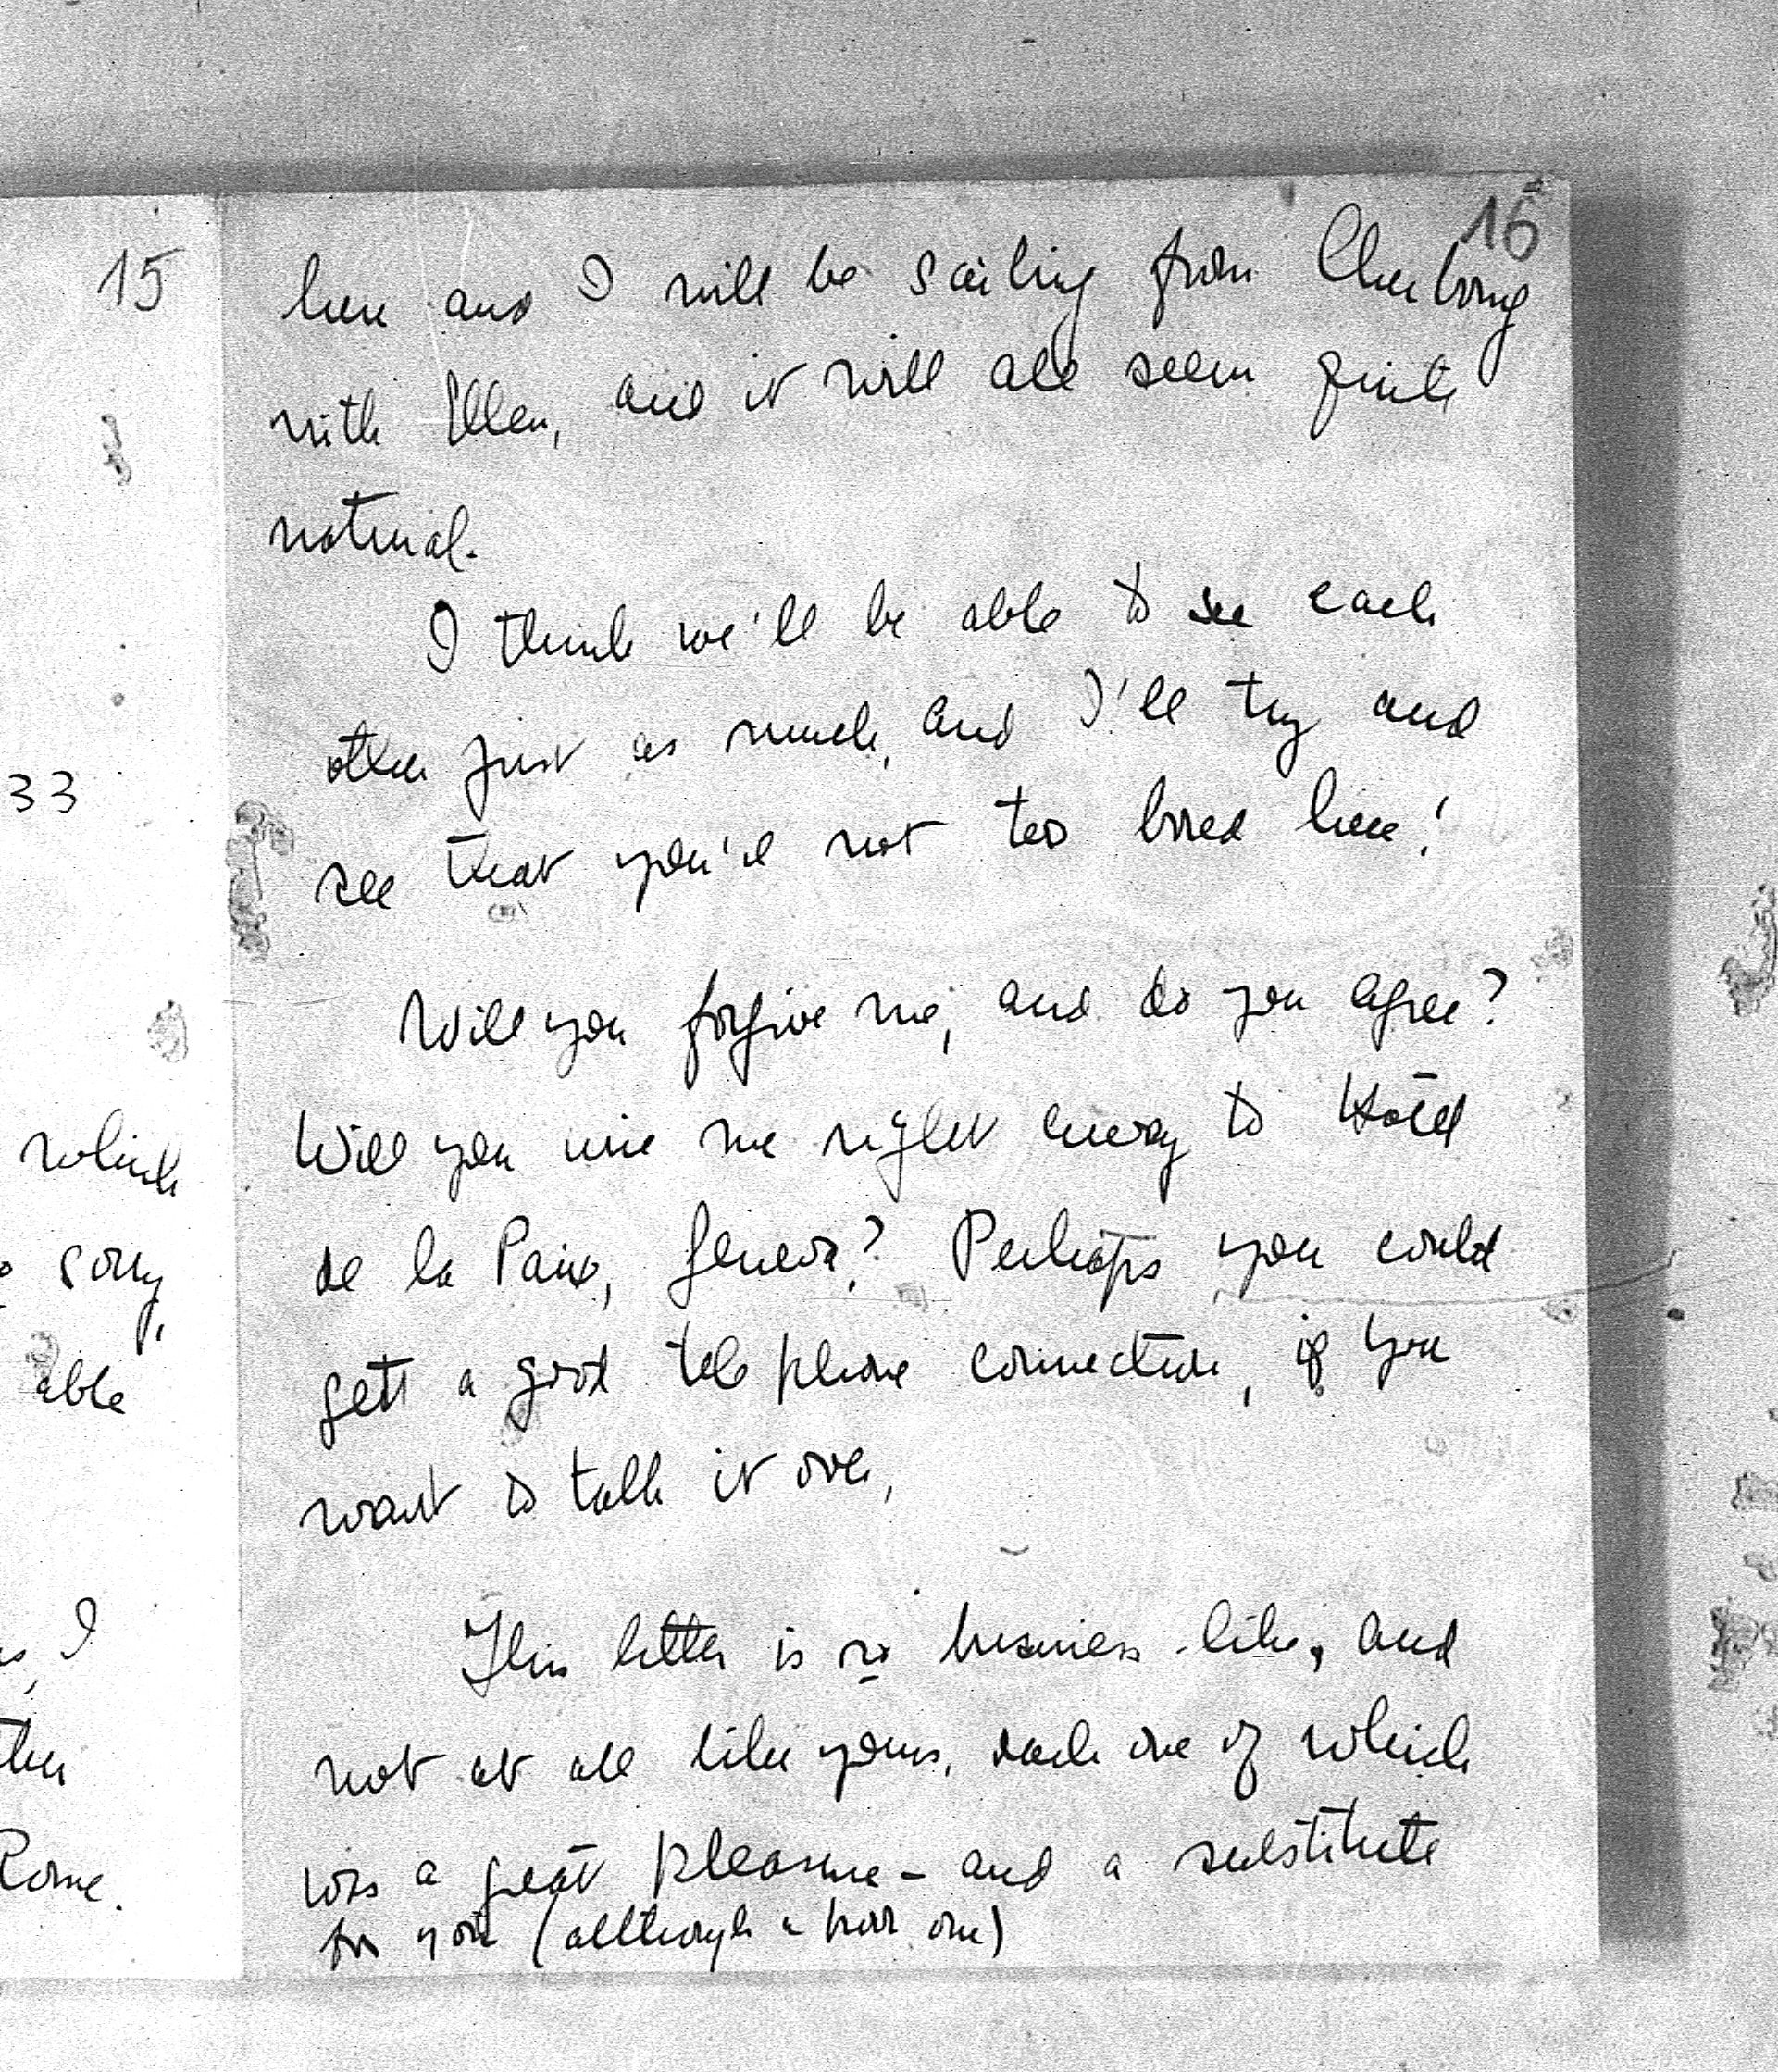 15
33
which
sorry,
able
I
then
Rome.
16
here and I will be sailing from Cherbourg
with Ellen, and it will all seem quite
natural.
I think we'll be able to see each
other just as much, and I'll try and
see that you're not too bored here!
Will you forgive me, and do you agree?
Will you wire me right away to Hôtel
de la Paix, Geneva? Perhaps you could
get a good telephone connection, if you
want to talk it over,
This letter is so business-like, and
not at all like yours, each one of which
was a great pleasure - and a substitute
for you (although a poor one)